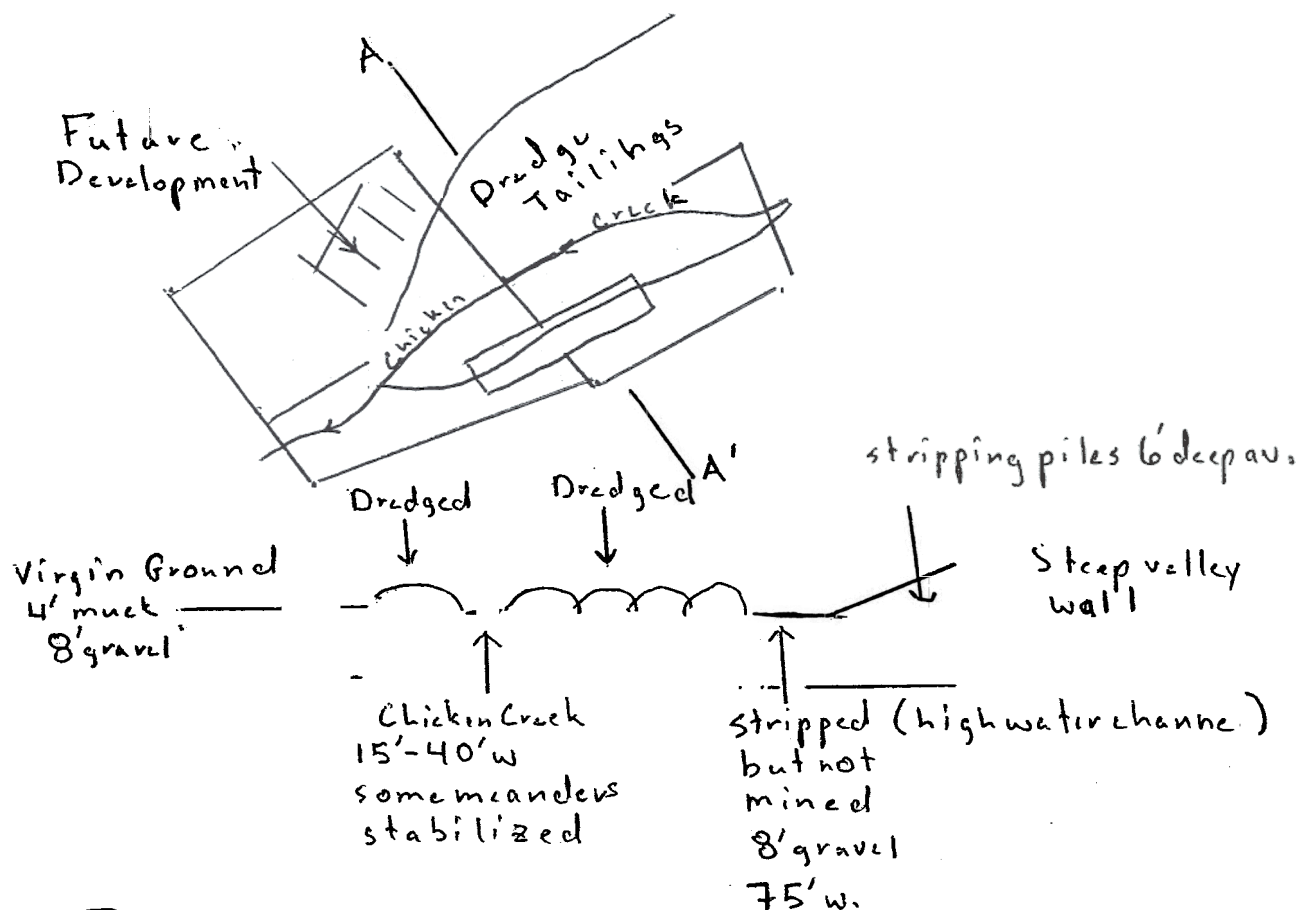 A.
Future
Development
Dredge
Tailings
Creek
Chicken
A'
stripping piles 6' deep av.
Dredged
Dredged
Virgin Ground
4' muck
8' gravel
Steep valley
wall
Chicken Creek
15'-40' w
some meanders
stabilized
stripped (high water channe )
but not
mined
8' gravel
75' w.